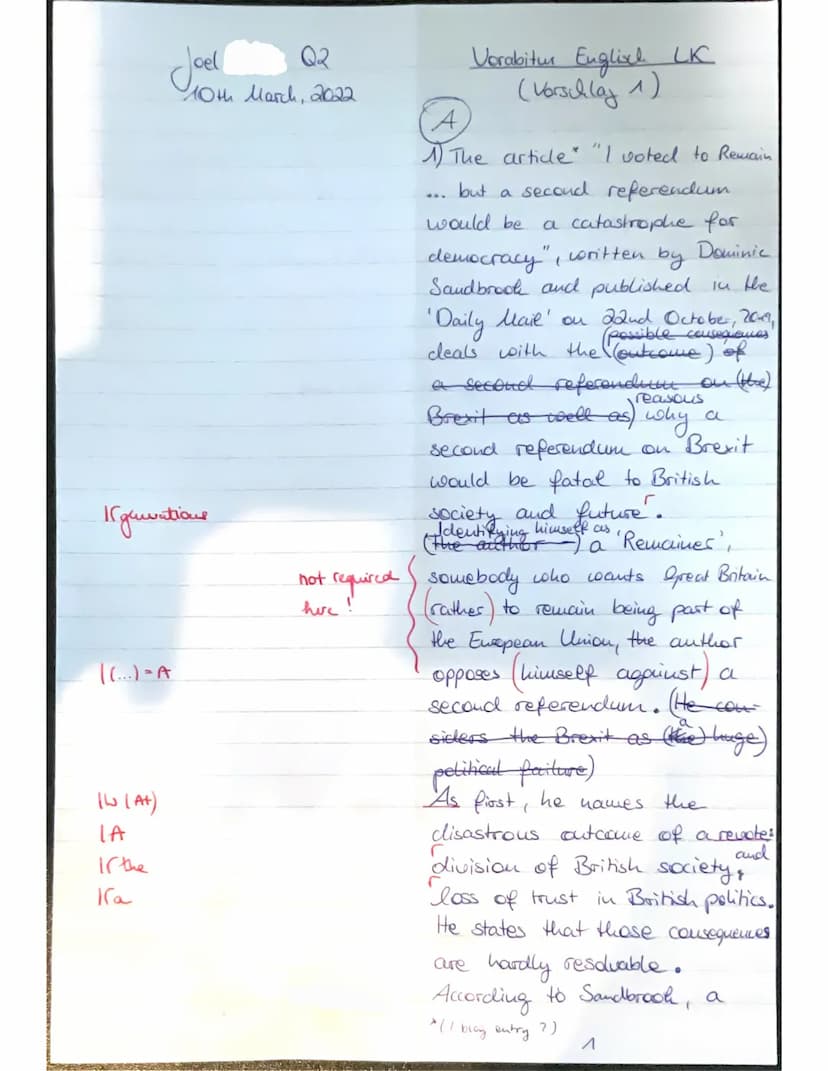 Joel Q2
10th March, 2022
Vorabitur Englisch LK
(Vorschlag 1)
A
1) The article* "I voted to Remain
... but a second referendum
would be a catastrophe for
democracy", written by Dominic
Sandbrook and published in the
'Daily Mail' on 22nd October, 2019,
(possible consequences
deals with the (outcome) of
a second referendum on (the)
reasons
Brexit as well as) why a
second referendum on Brexit
would be fatal to British
society and future.
Identifying himself as
(the author) a 'Remainer',
not required
here!
somebody who wants Great Britain
(rather) to remain being part of
the European Union, the author
|(...) = A
opposes (himself against) a
second referendum. (He con-
a
siders the Brexit as (the) huge)
political failure)
|W (At)
As first, he names the
|A
disastrous outcome of a revote:
|the
division of British society, and
|a
loss of trust in British politics.
He states that those consequences
are hardly resolvable.
According to Sandbrook, a
*(/ blog entry ?)
1